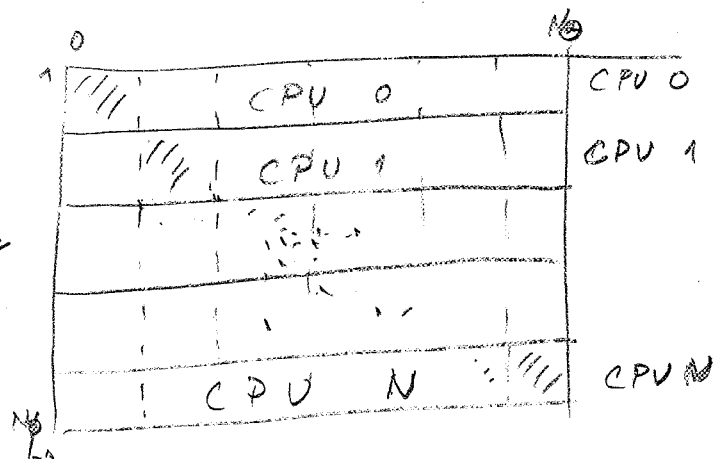 0
1
CPU 0
CPU 0
CPU 1
CPU 1
CPU N
CPU N